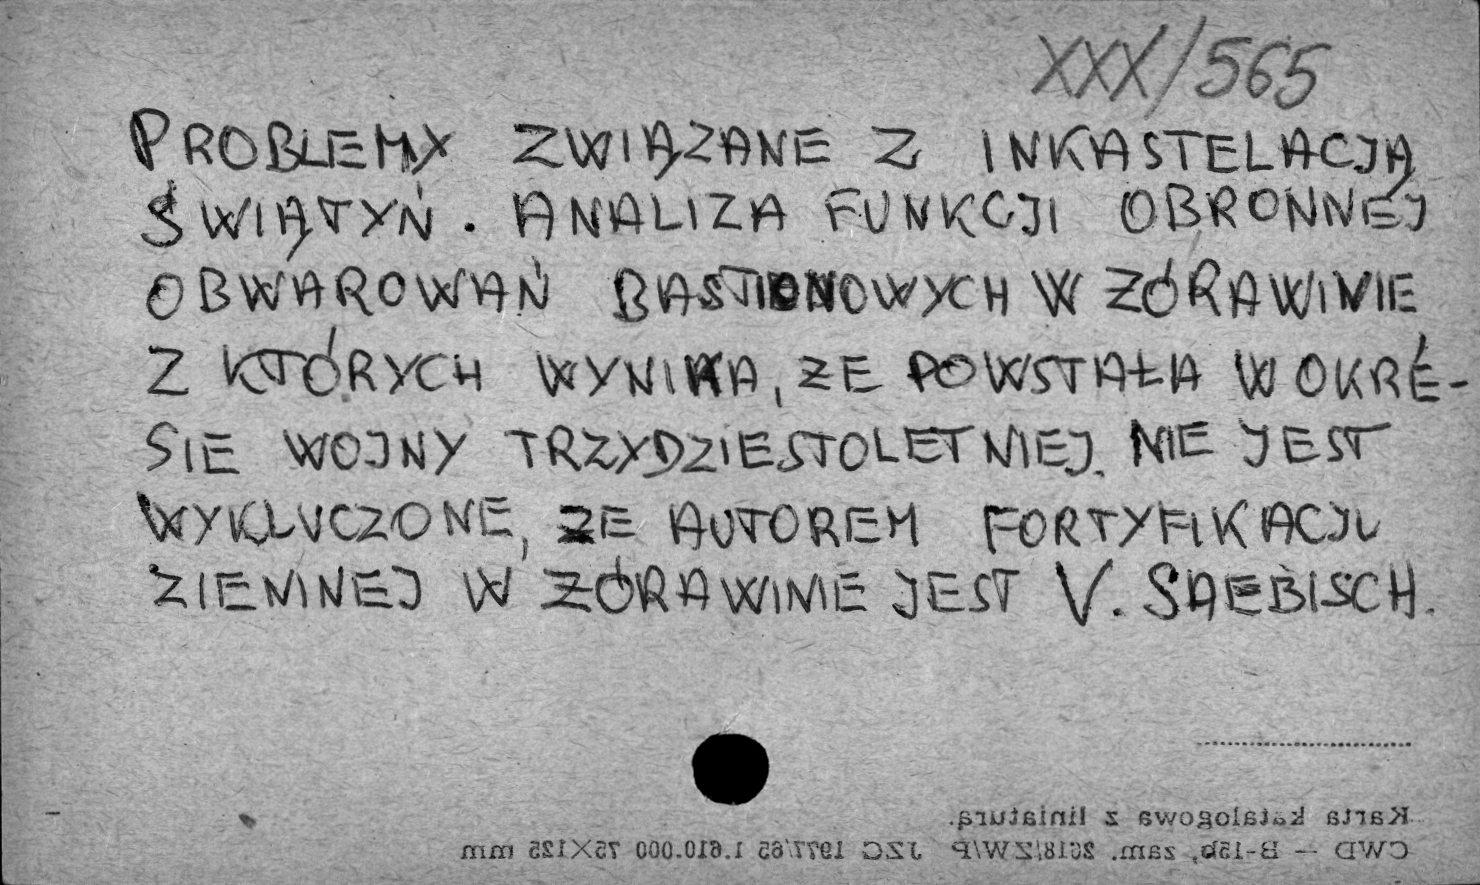 XXX/565
PROBLEMY ZWIĄZANE Z INKASTELACJĄ
ŚWIĄTYŃ. ANALIZA FUNKCJI OBRONNEJ
OBWAROWAŃ BASTIONOWYCH W ŻÓRAWINIE
Z KTÓRYCH WYNIKA, ŻE POWSTAŁA W OKRE-
SIE WOJNY TRZYDZIESTOLETNIEJ. NIE JEST
WYKLUCZONE, ŻE AUTOREM FORTYFIKACJI
ZIEMNEJ W ŻÓRAWINIE JEST V. SAEBISCH.
Karta katalogowa z liniaturą.
CWD — B-15b, zam. 2618/ZW/P JZG 1977/65 1.610.000 75X125 mm